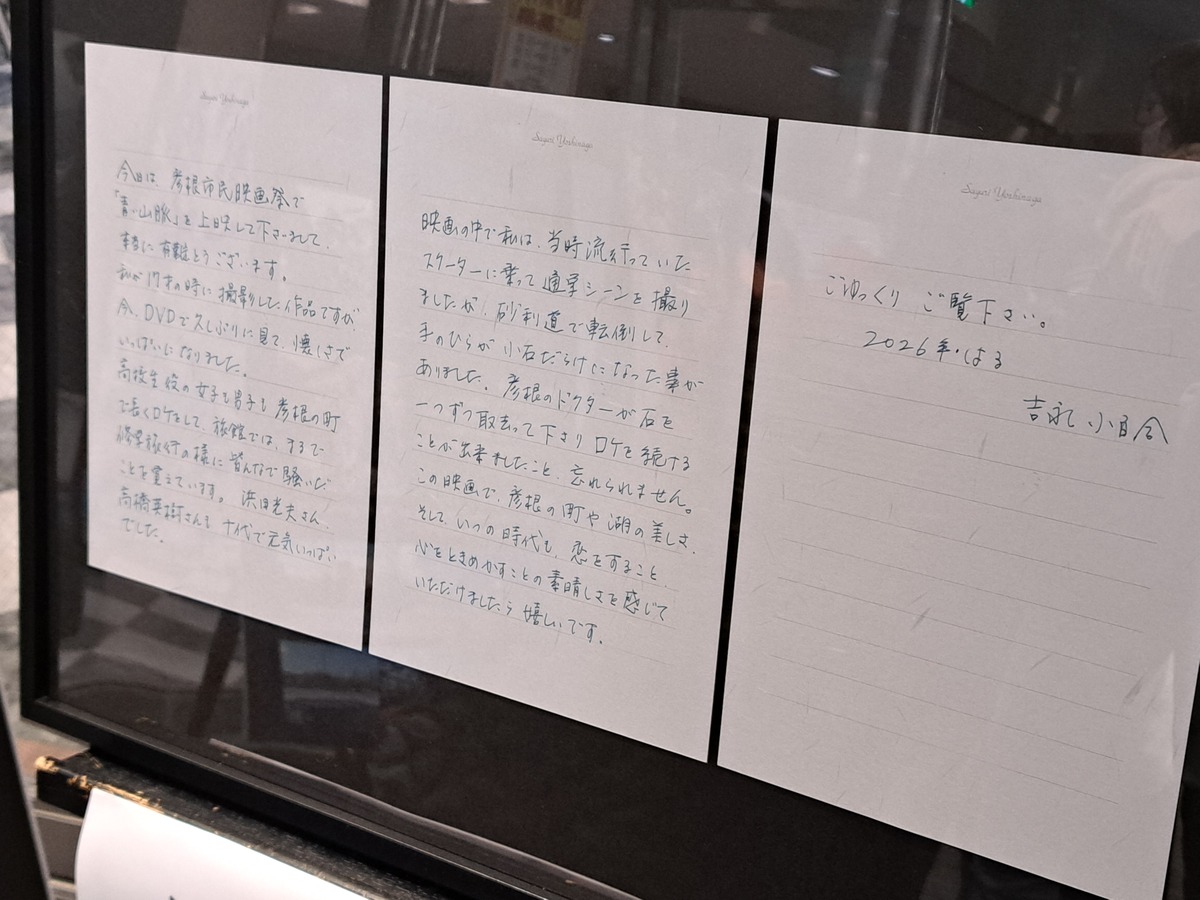 Sayuri Yoshinaga
今日は、彦根市民映画祭で
「青い山脈」を上映して下さいまして、
本当に有難とうございます。
私が17才の時に撮影した作品ですが、
今、DVDで久しぶりに見て、懐しさで
いっぱいになりました。
高校生役の女子も男子も彦根の町
で長くロケをして、旅館では、まるで
修学旅行の様に皆んなで騒いだ
ことを覚えています。浜田光夫さん、
高橋英樹さんも十代で元気いっぱい
でした。
Sayuri Yoshinaga
映画の中で私は、当時流行っていた
スクーターに乗って通学シーンを撮り
ましたが、砂利道で転倒して、
手のひらが小石だらけになった事が
ありました。彦根のドクターが石を
一つずつ取去って下さりロケを続ける
ことが出来ましたこと、忘れられません。
この映画で、彦根の町や湖の美しさ、
そして、いつの時代も、恋をすること、
心をときめかすことの素晴しさを感じて
いただけましたら嬉しいです。
Sayuri Yoshinaga
ごゆっくり ご覧下さい。
2026年・はる
吉永小百合